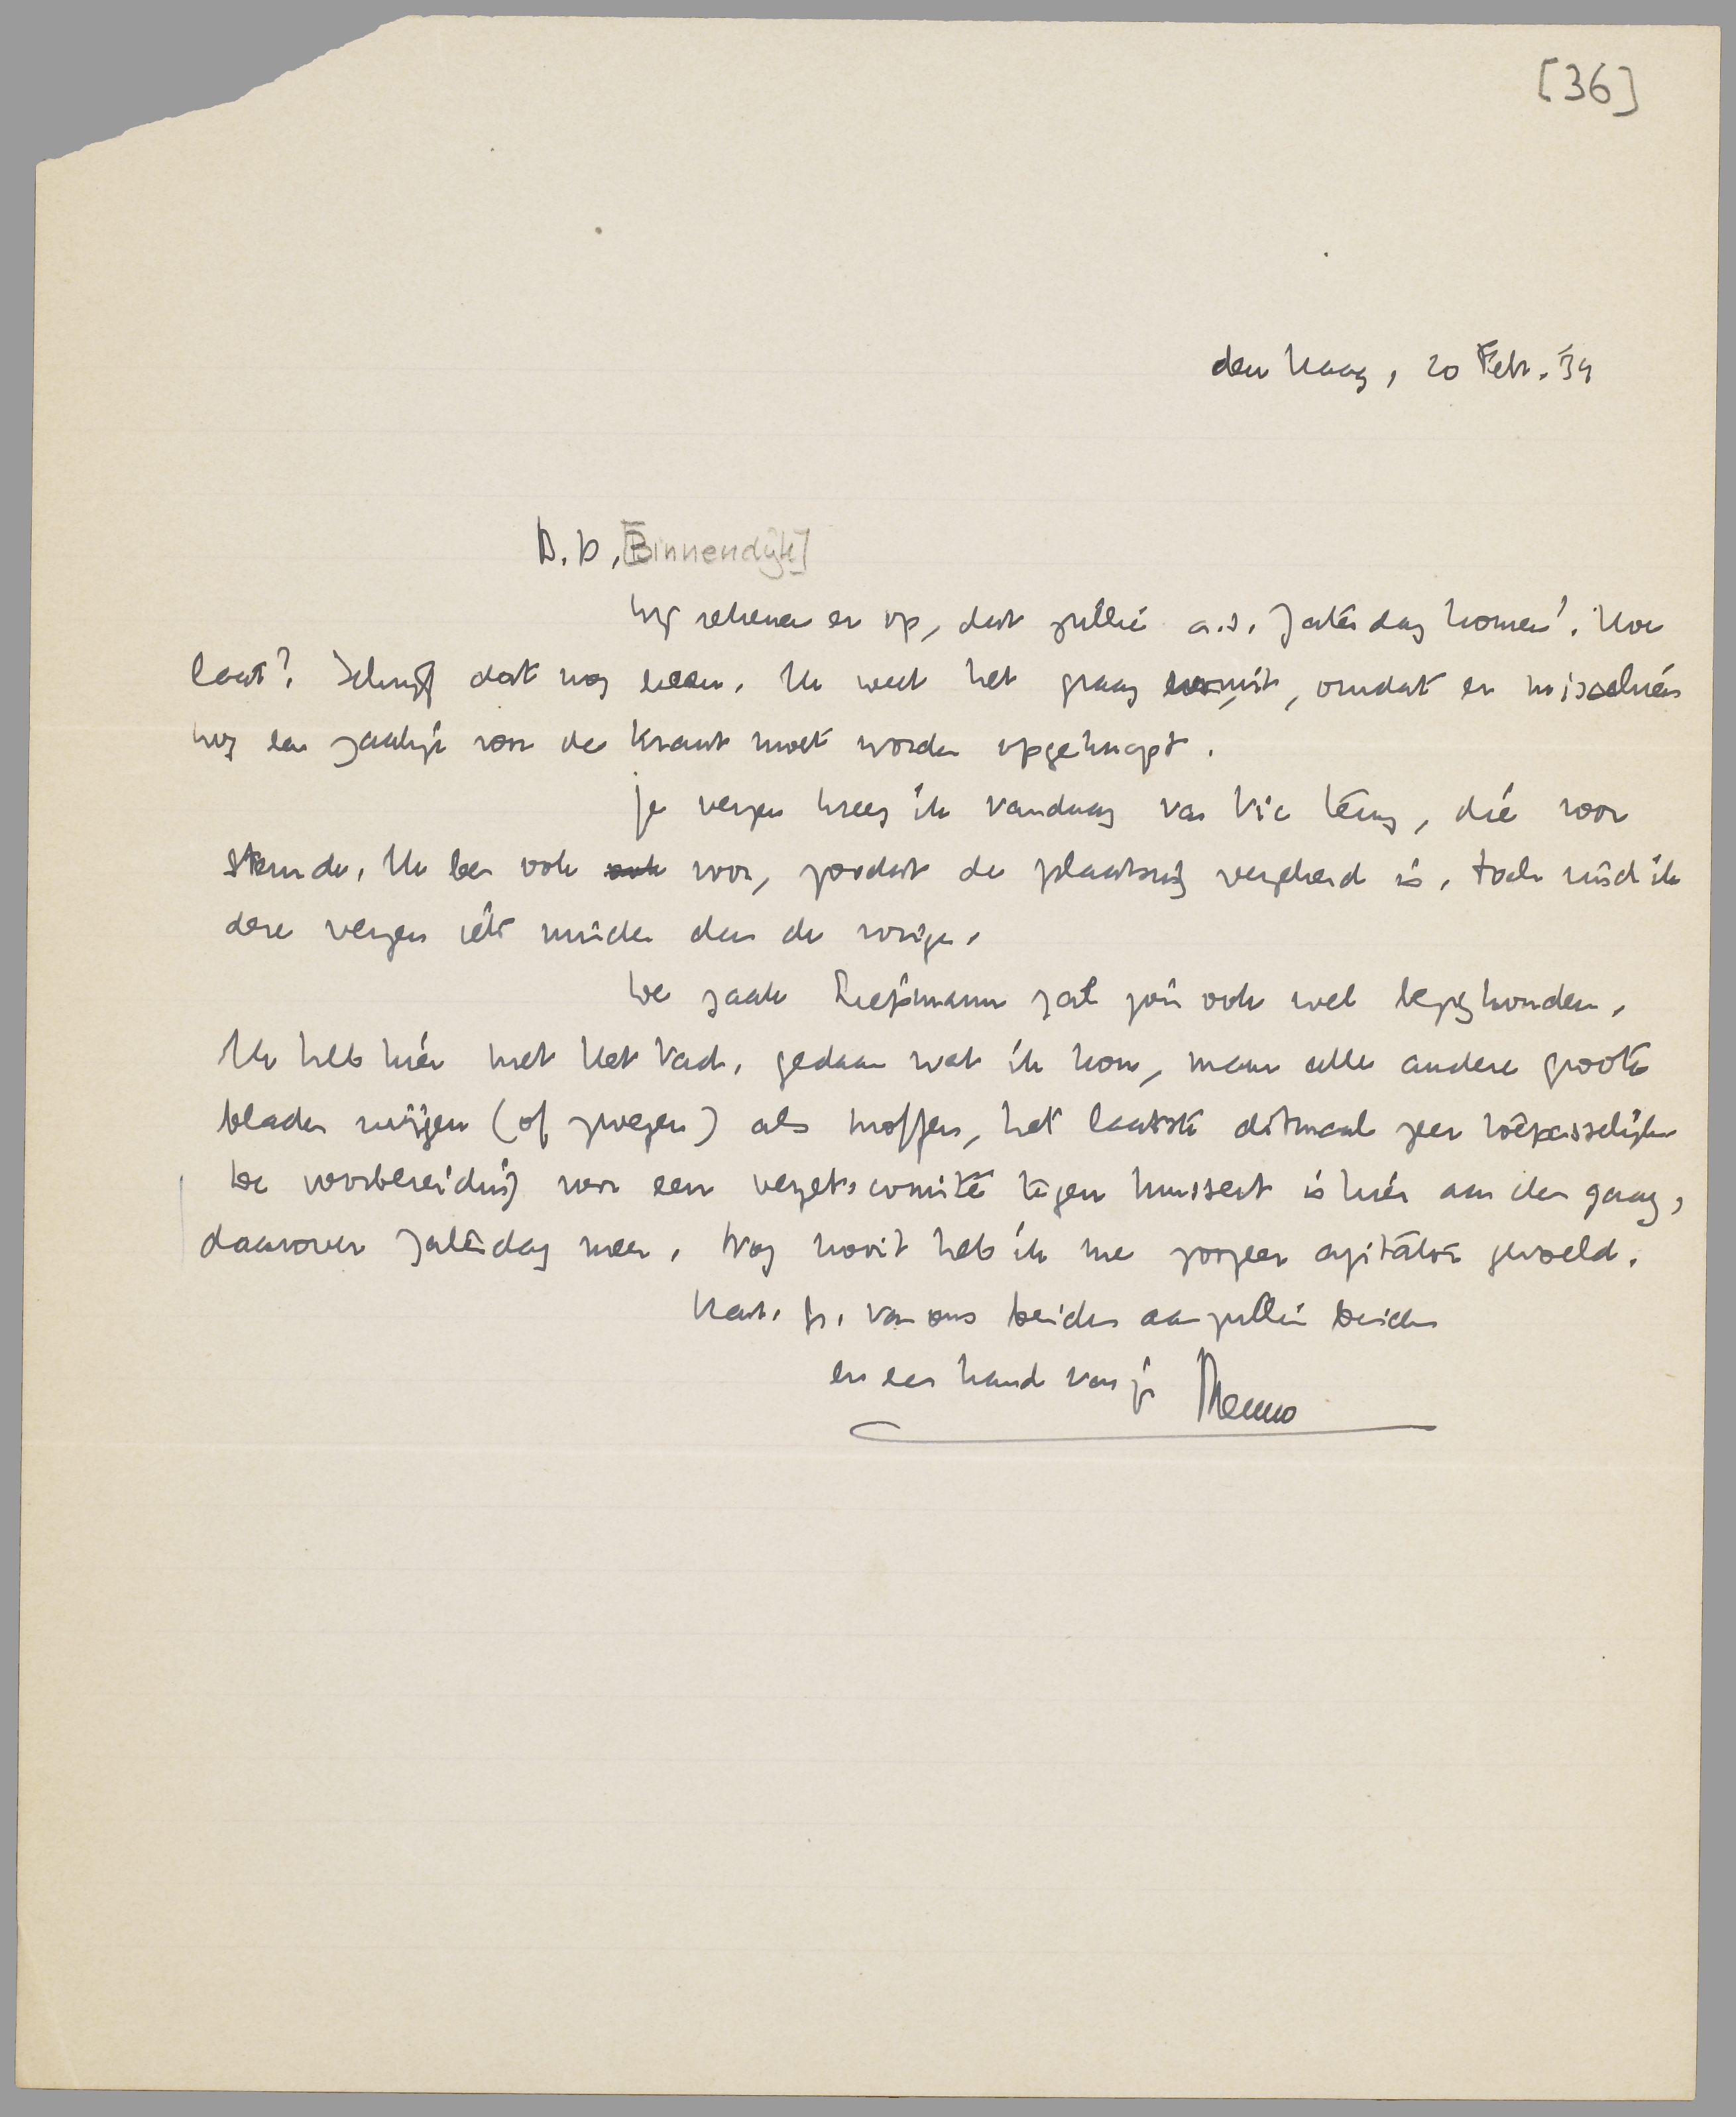 [36]
den Haag, 20 Febr. '34
B.D, [Binnendijk]
Wij rekenen er op, dat jullie a.s. Zaterdag komen! Hoe
laat? Schrijf dat nog even. Ik weet het graag vooruit, omdat er misschien
nog een zaakje voor de krant moet worden opgeknapt.
Je verzen kreeg ik vandaag van Vic terug, die voor
stemde. Ik ben ook voor, zoodat de plaatsing verzekerd is. Toch vind ik
deze verzen iets minder dan de vorige.
De zaak Liepmann zal jou ook wel bezighouden.
Ik heb hier met Het Vad. gedaan wat ik kon, maar alle andere groote
bladen zwijgen (of zwegen) als moffen, het laatste ditmaal zeer toepasselijk.
De voorbereiding voor een verzets-comité tegen Mussert is hier aan den gang,
daarover Zaterdag meer. Nog nooit heb ik me zoozeer agitator gevoeld.
Hart. gr. van ons beiden aan jullie beiden
en een hand van je Menno